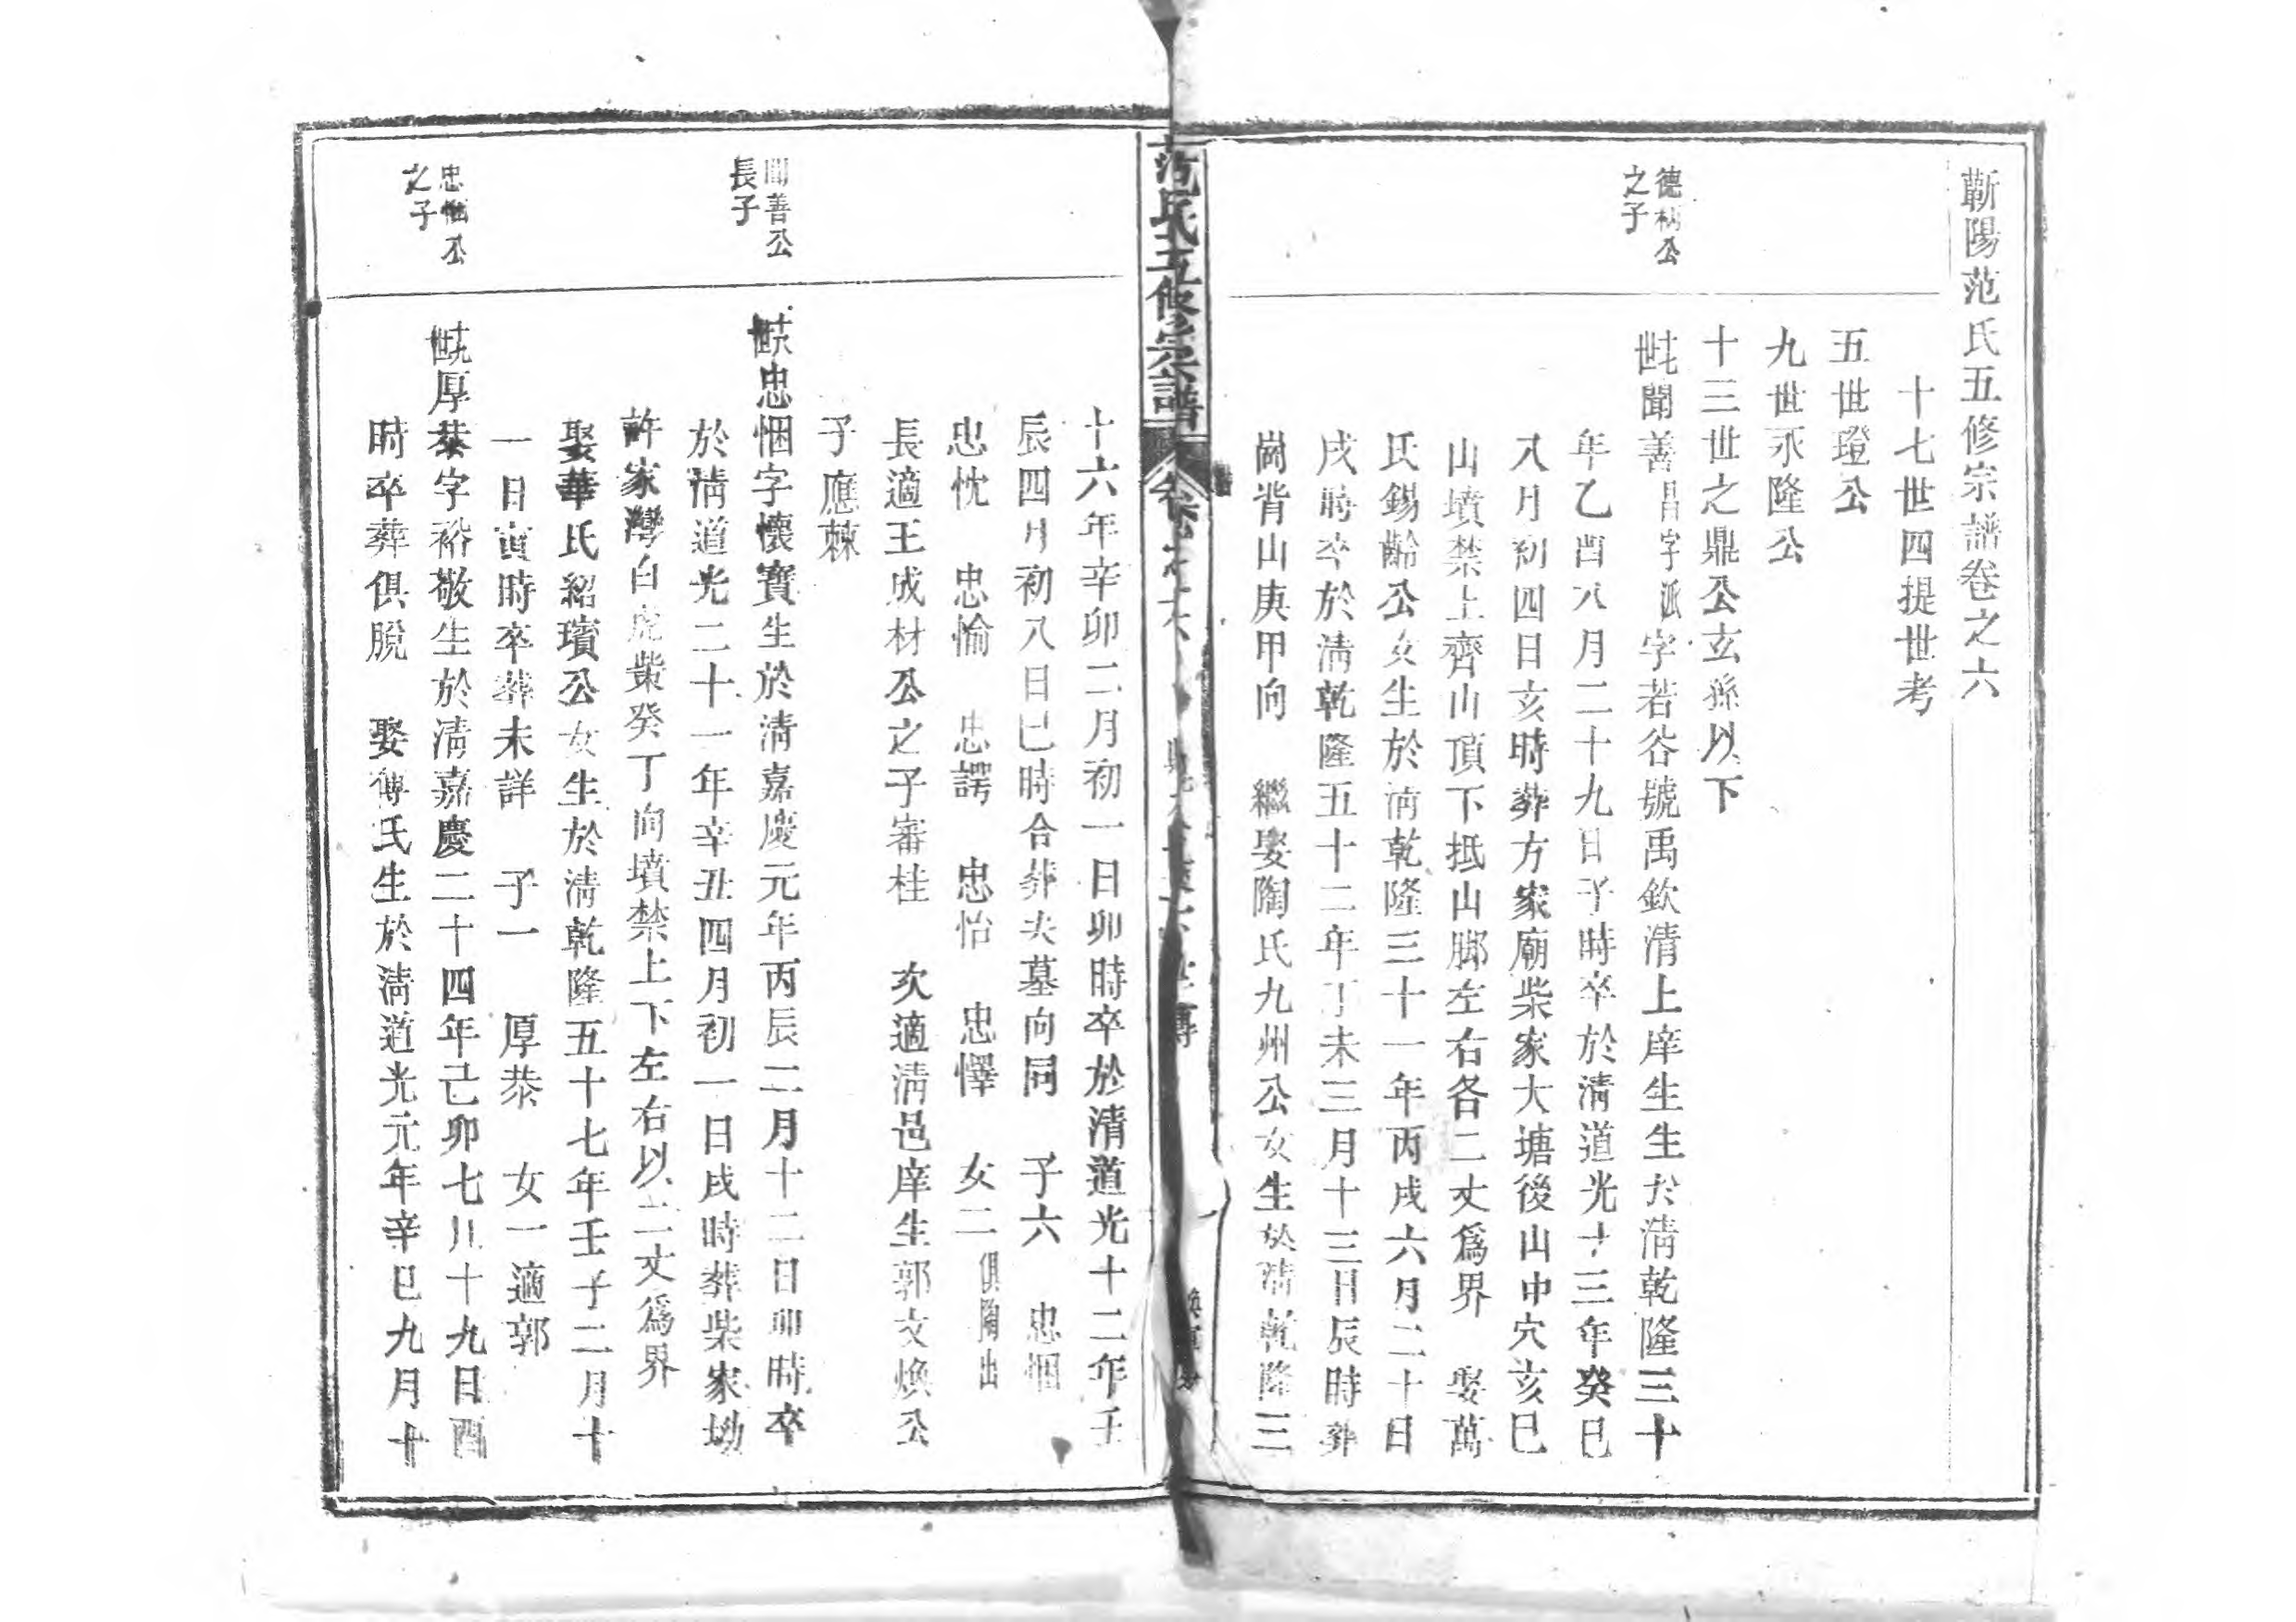 蘄陽范氏五修宗譜卷之六
十七世四提世考
五世璒公
九世永隆公
十三世之鼎公玄孫以下
德柄公
之子
聞善昌字派字若谷號禹欽清上庠生生於清乾隆三十
年乙酉八月二十九日子時卒於清道光十三年癸巳
八月初四日亥時葬方家廟柴家大塘後山中穴亥巳
山墳禁上齊山頂下抵山脚左右各二丈爲界 娶萬
氏錫齡公女生於清乾隆三十一年丙戌六月二十日
戌時卒於清乾隆五十二年丁未三月十三日辰時葬
崗背山庚甲向 繼娶陶氏九州公女生於清乾隆三
范氏五修宗譜
卷之六
十六年辛卯二月初一日卯時卒於清道光十二年壬
辰四月初八日巳時合葬夫墓向同 子六 忠悃
忠忱 忠愉 忠諤 忠怡 忠懌 女二 俱陶出
長適王成材公之子審桂 次適清邑庠生郭文煥公
子應棘
聞善公
長子
忠悃字懷寶生於清嘉慶元年丙辰二月十二日卯時卒
於清道光二十一年辛丑四月初一日戌時葬柴家坳
許家灣白虎柴癸丁向墳禁上下左右以二丈爲界
娶華氏紹璸公女生於清乾隆五十七年壬子二月十
一日寅時卒葬未詳 子一 厚恭 女一適郭
忠悃公
之子
厚恭字裕敬生於清嘉慶二十四年己卯七月十九日酉
時卒葬俱脫 娶傅氏生於清道光元年辛巳九月十